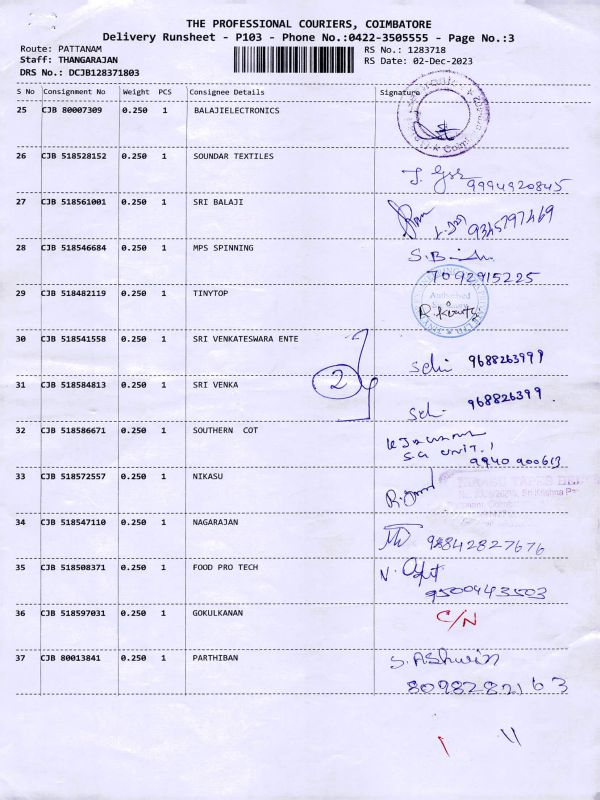 THE PROFESSIONAL COURIERS, COIMBATORE
Delivery Runsheet - P103 - Phone No.:0422-3505555 - Page No.:3
Route: PATTANAM RS No.: 1283718
Staff: THANGARAJAN RS Date: 02-Dec-2023
DRS No.: DCJB128371803
S No Consignment No Weight PCS Consignee Details Signature
25 CJB 80007309 0.250 1 BALAJIELECTRONICS
26 CJB 518528152 0.250 1 SOUNDAR TEXTILES
9994920845
27 CJB 518561001 0.250 1 SRI BALAJI
9345797469
28 CJB 518546684 0.250 1 MPS SPINNING
7092915225
29 CJB 518482119 0.250 1 TINYTOP
Authorised
30 CJB 518541558 0.250 1 SRI VENKATESWARA ENTE
9688263999
2
31 CJB 518584813 0.250 1 SRI VENKA
968826399
32 CJB 518586671 0.250 1 SOUTHERN COT
unit.1
9940 900613
33 CJB 518572557 0.250 1 NIKASU
NIKASU TAPES
Sri Krishna
34 CJB 518547110 0.250 1 NAGARAJAN
35 CJB 518508371 0.250 1 FOOD PRO TECH
9500443503
36 CJB 518597031 0.250 1 GOKULKANAN
C/N
37 CJB 80013841 0.250 1 PARTHIBAN
S. Ashwin
8098282163